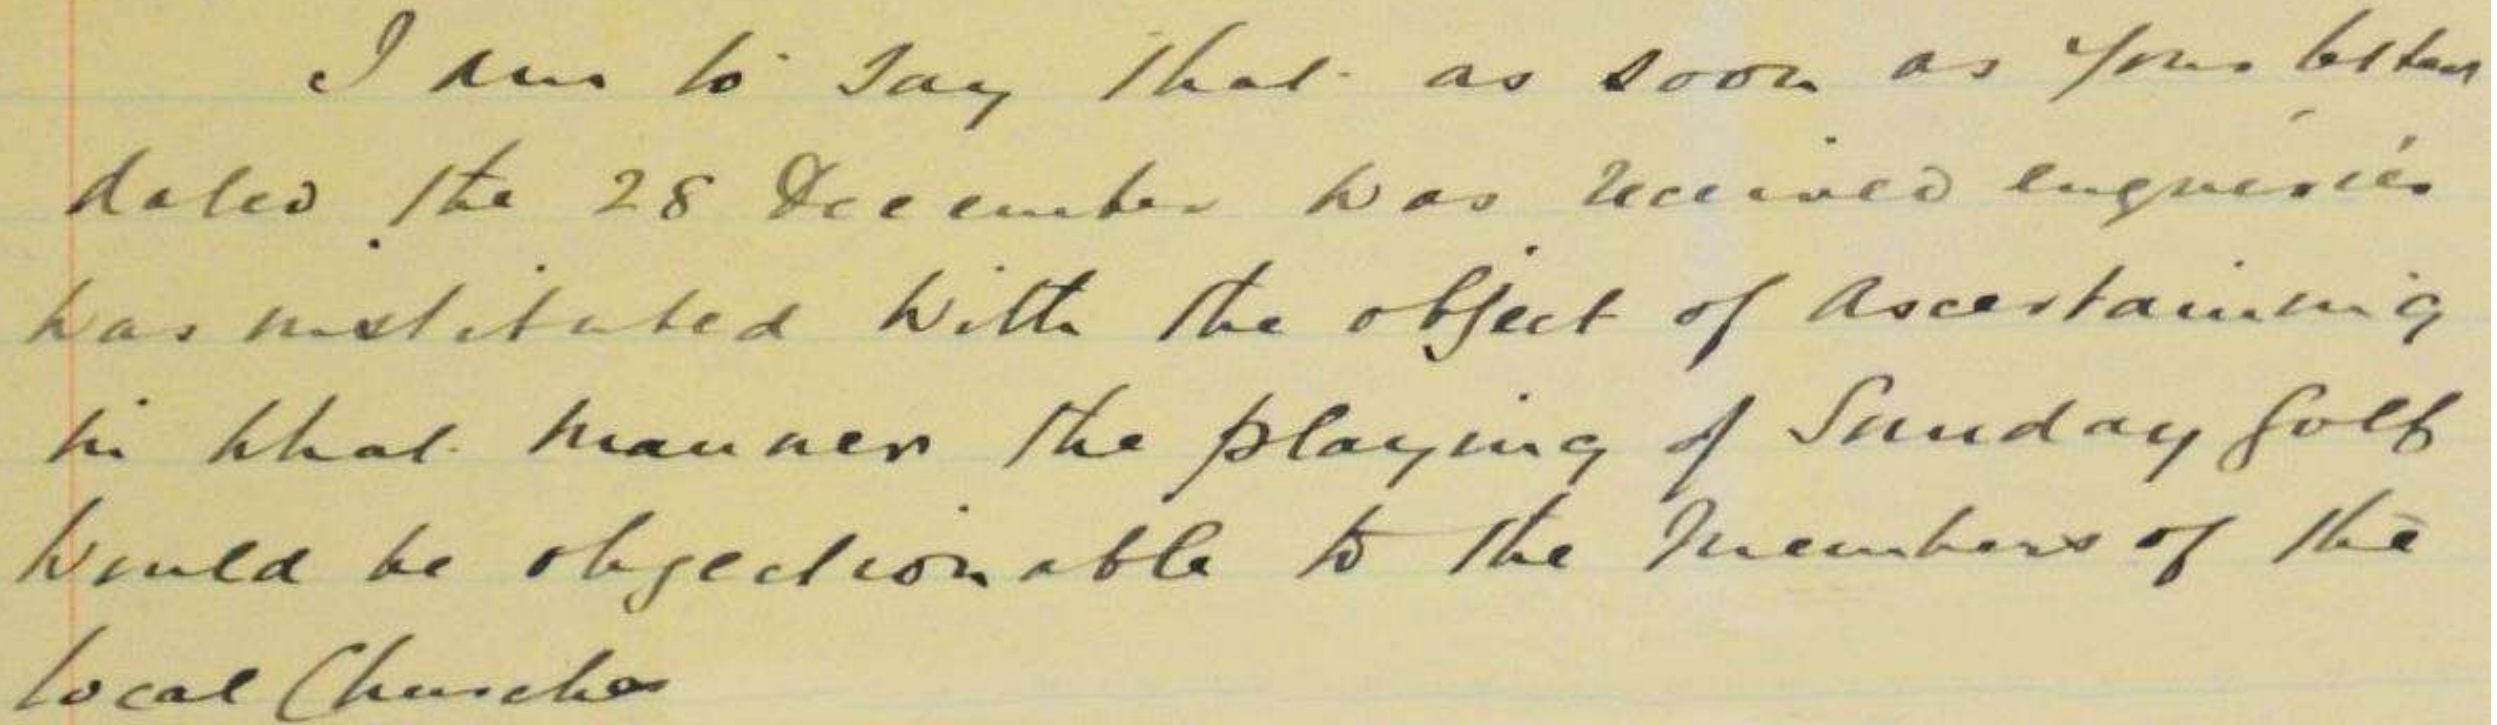 I am to say that as soon as your letter
dated the 28 December was received enqueries
was instituted with the object of ascertaining
in what manner the playing of Sunday Golf
would be objectionable to the Members of the
local Churches